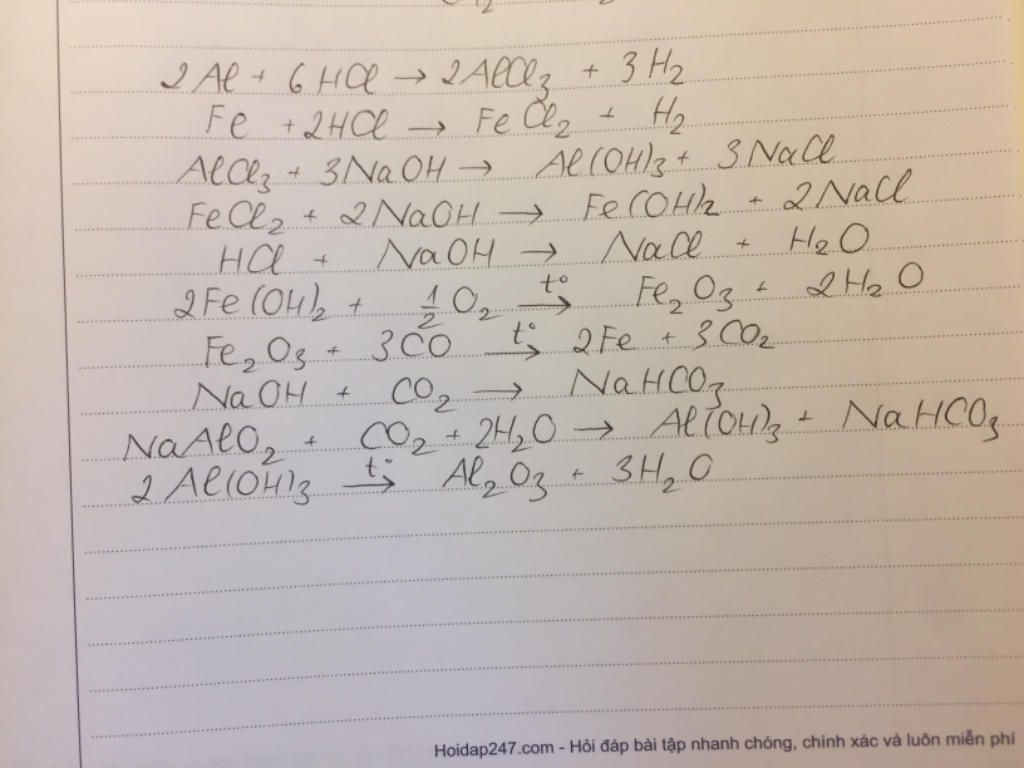 2Al + 6HCl → 2AlCl₃ + 3H₂
Fe + 2HCl → FeCl₂ + H₂
AlCl₃ + 3NaOH → Al(OH)₃ + 3NaCl
FeCl₂ + 2NaOH → Fe(OH)₂ + 2NaCl
HCl + NaOH → NaCl + H₂O
2Fe(OH)₂ + 1/2 O₂ →(t°) Fe₂O₃ + 2H₂O
Fe₂O₃ + 3CO →(t°) 2Fe + 3CO₂
NaOH + CO₂ → NaHCO₃
NaAlO₂ + CO₂ + 2H₂O → Al(OH)₃ + NaHCO₃
2Al(OH)₃ →(t°) Al₂O₃ + 3H₂O
Hoidap247.com - Hỏi đáp bài tập nhanh chóng, chính xác và luôn miễn phí